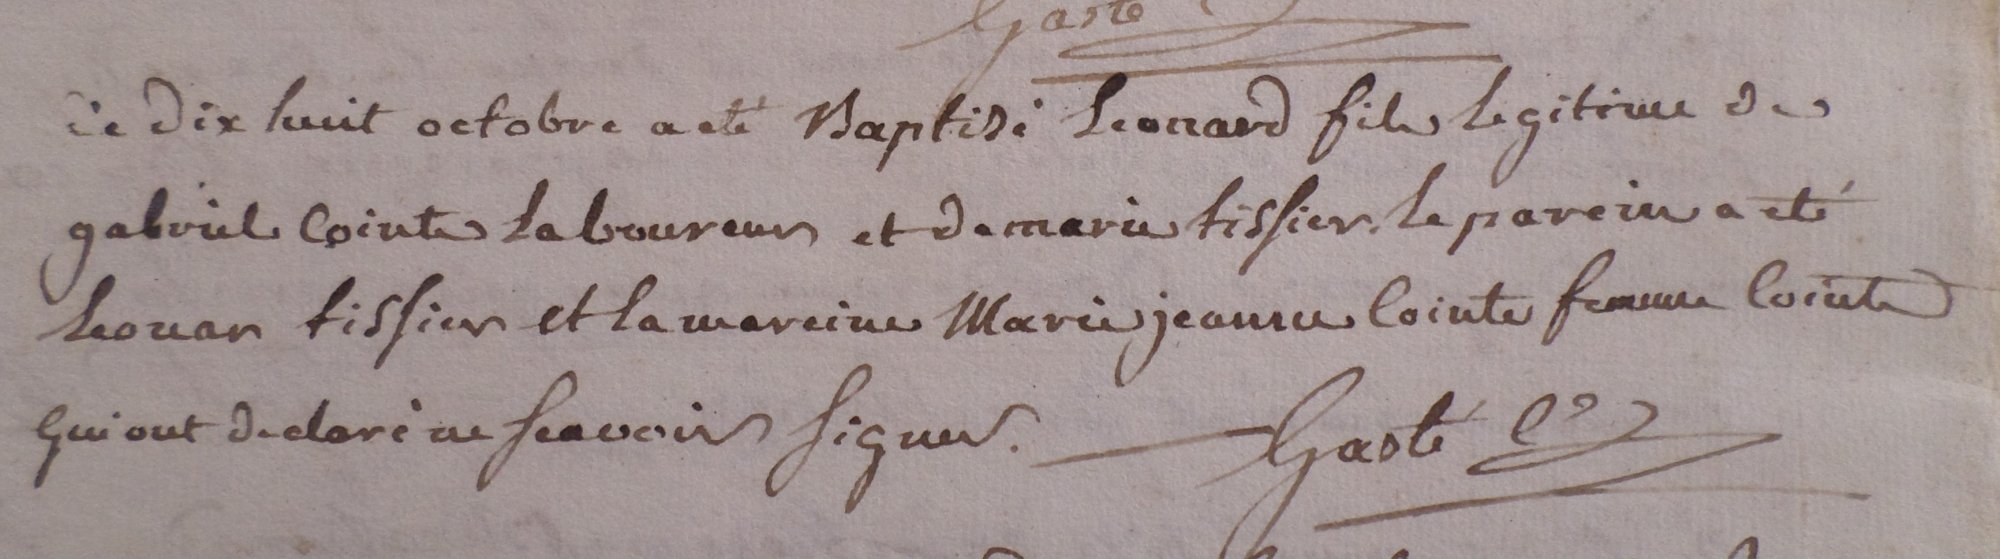 Gasté
ce dix huit octobre a eté Baptisé Leonard fils Legitime de
gabriel Cointe Laboureur et de marie tissier. Le parein a eté
Leonar tissier et la mareine Marie jeanne Cointe femme Cointe
qui ont declaré ne scavoir signer. Gasté